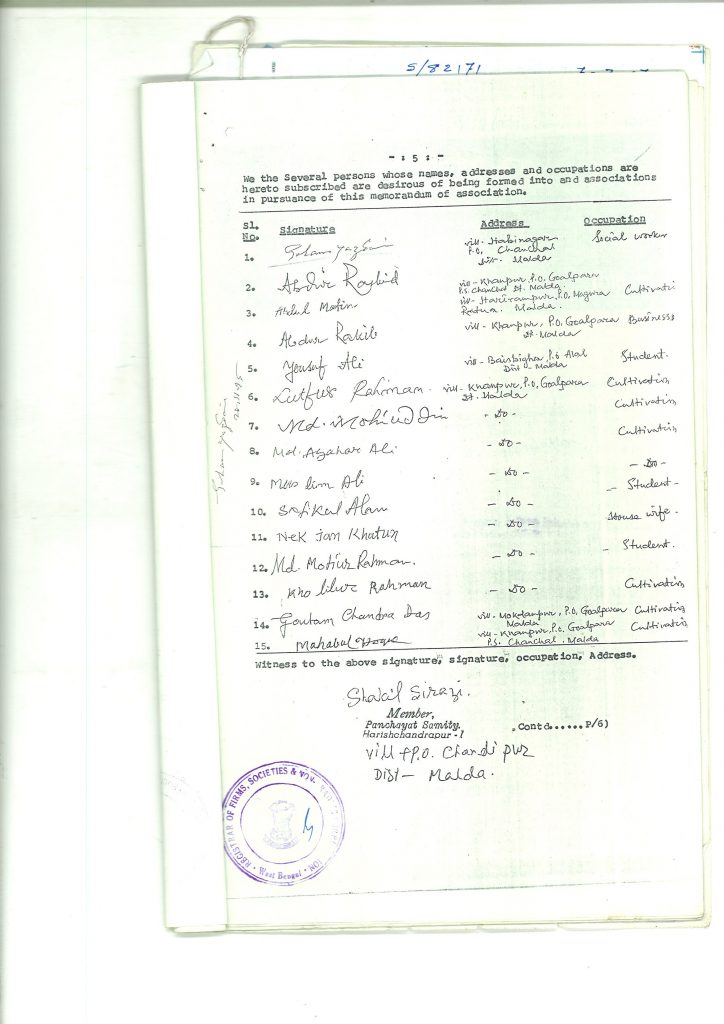 S/82171
- : 5 : -
We the Several persons whose names, addresses and occupations are
hereto subscribed are desirous of being formed into and associations
in pursuance of this memorandum of association.
Sl. No. Signature Address Occupation
1. vill- Habinagar P.O. Chanchal Dist- Malda Social worker
2. Abdur Rashid vill- Khanpur, P.O. Goalpara P.S. Chanchal Dt. Malda
3. Abdul Matin vill- Harirampur, P.O. Ratua. Malda. Cultivatin
4. Abdur Rakib vill- Khanpur, P.O. Goalpara Dt. Malda Business
5. Yousuf Ali vill- Dist- Malda Student.
6. Lutfur Rahman. vill- Khanpur, P.O, Goalpara Dt. Malda Cultivatin
7. Md. Mohiuddin - Do - Cultivatin
8. Md. Azahar Ali - Do - Cultivatin
9. Muslim Ali - Do - - Do -
10. Safikul Alam - Do - - Student -
11. Nek Jan Khatun - Do - House wife.
12. Md. Motiur Rahman. - Do - - Student.
13. Kholilur Rahman - Do - Cultivatin
14. Goutam Chandra Das vill- Mokdampur, P.O, Goalpara Malda Cultivatin
15. Mahabul Hoque vill- Khanpur, P.O. Goalpara P.S. Chanchal. Malda Cultivatin
Witness to the above signature, signature, occupation, Address.
Shakil Sirazi.
Member,
Panchayat Samity,
Harishchandrapur-I
Contd......P/6)
vill + P.O. Chandipur
Dist- Malda.
REGISTRAR OF FIRMS, SOCIETIES &
West Bengal